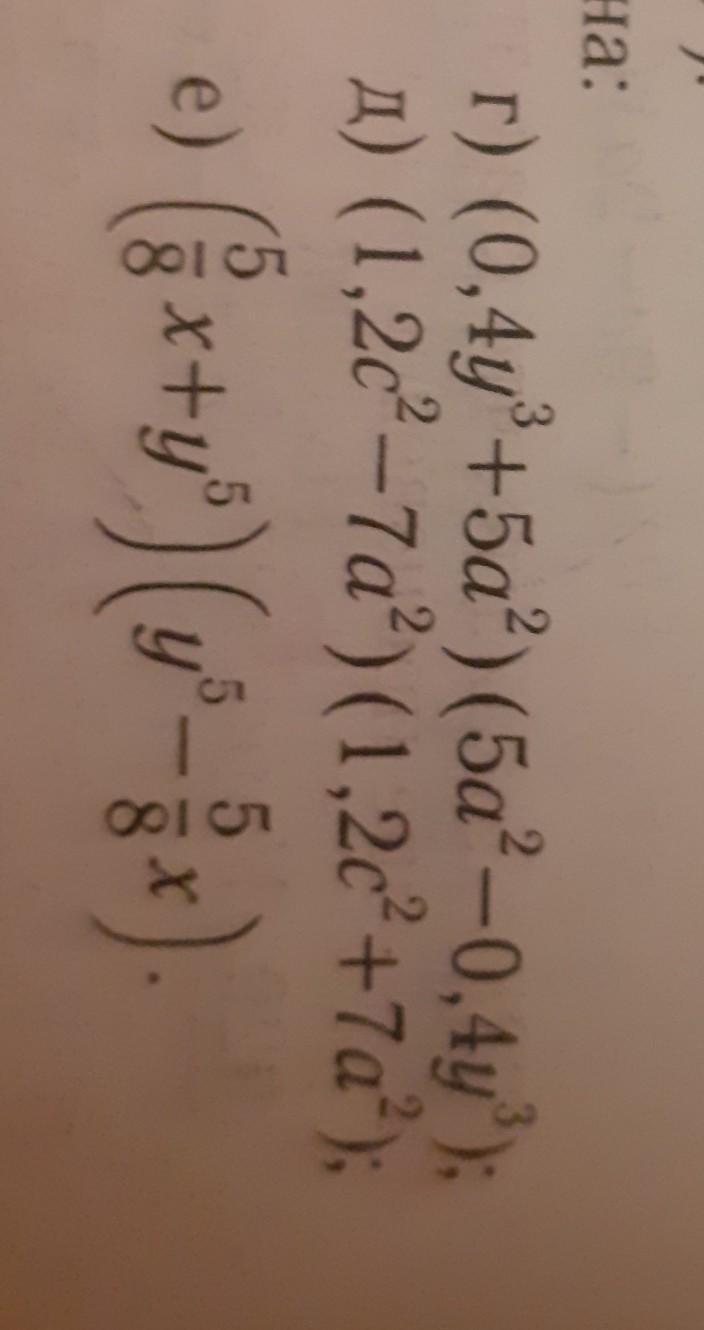 на:
г) (0,4y³+5a²)(5a²−0,4y³);
д) (1,2c²−7a²)(1,2c²+7a²);
е) (5/8 x+y⁵)(y⁵−5/8 x).